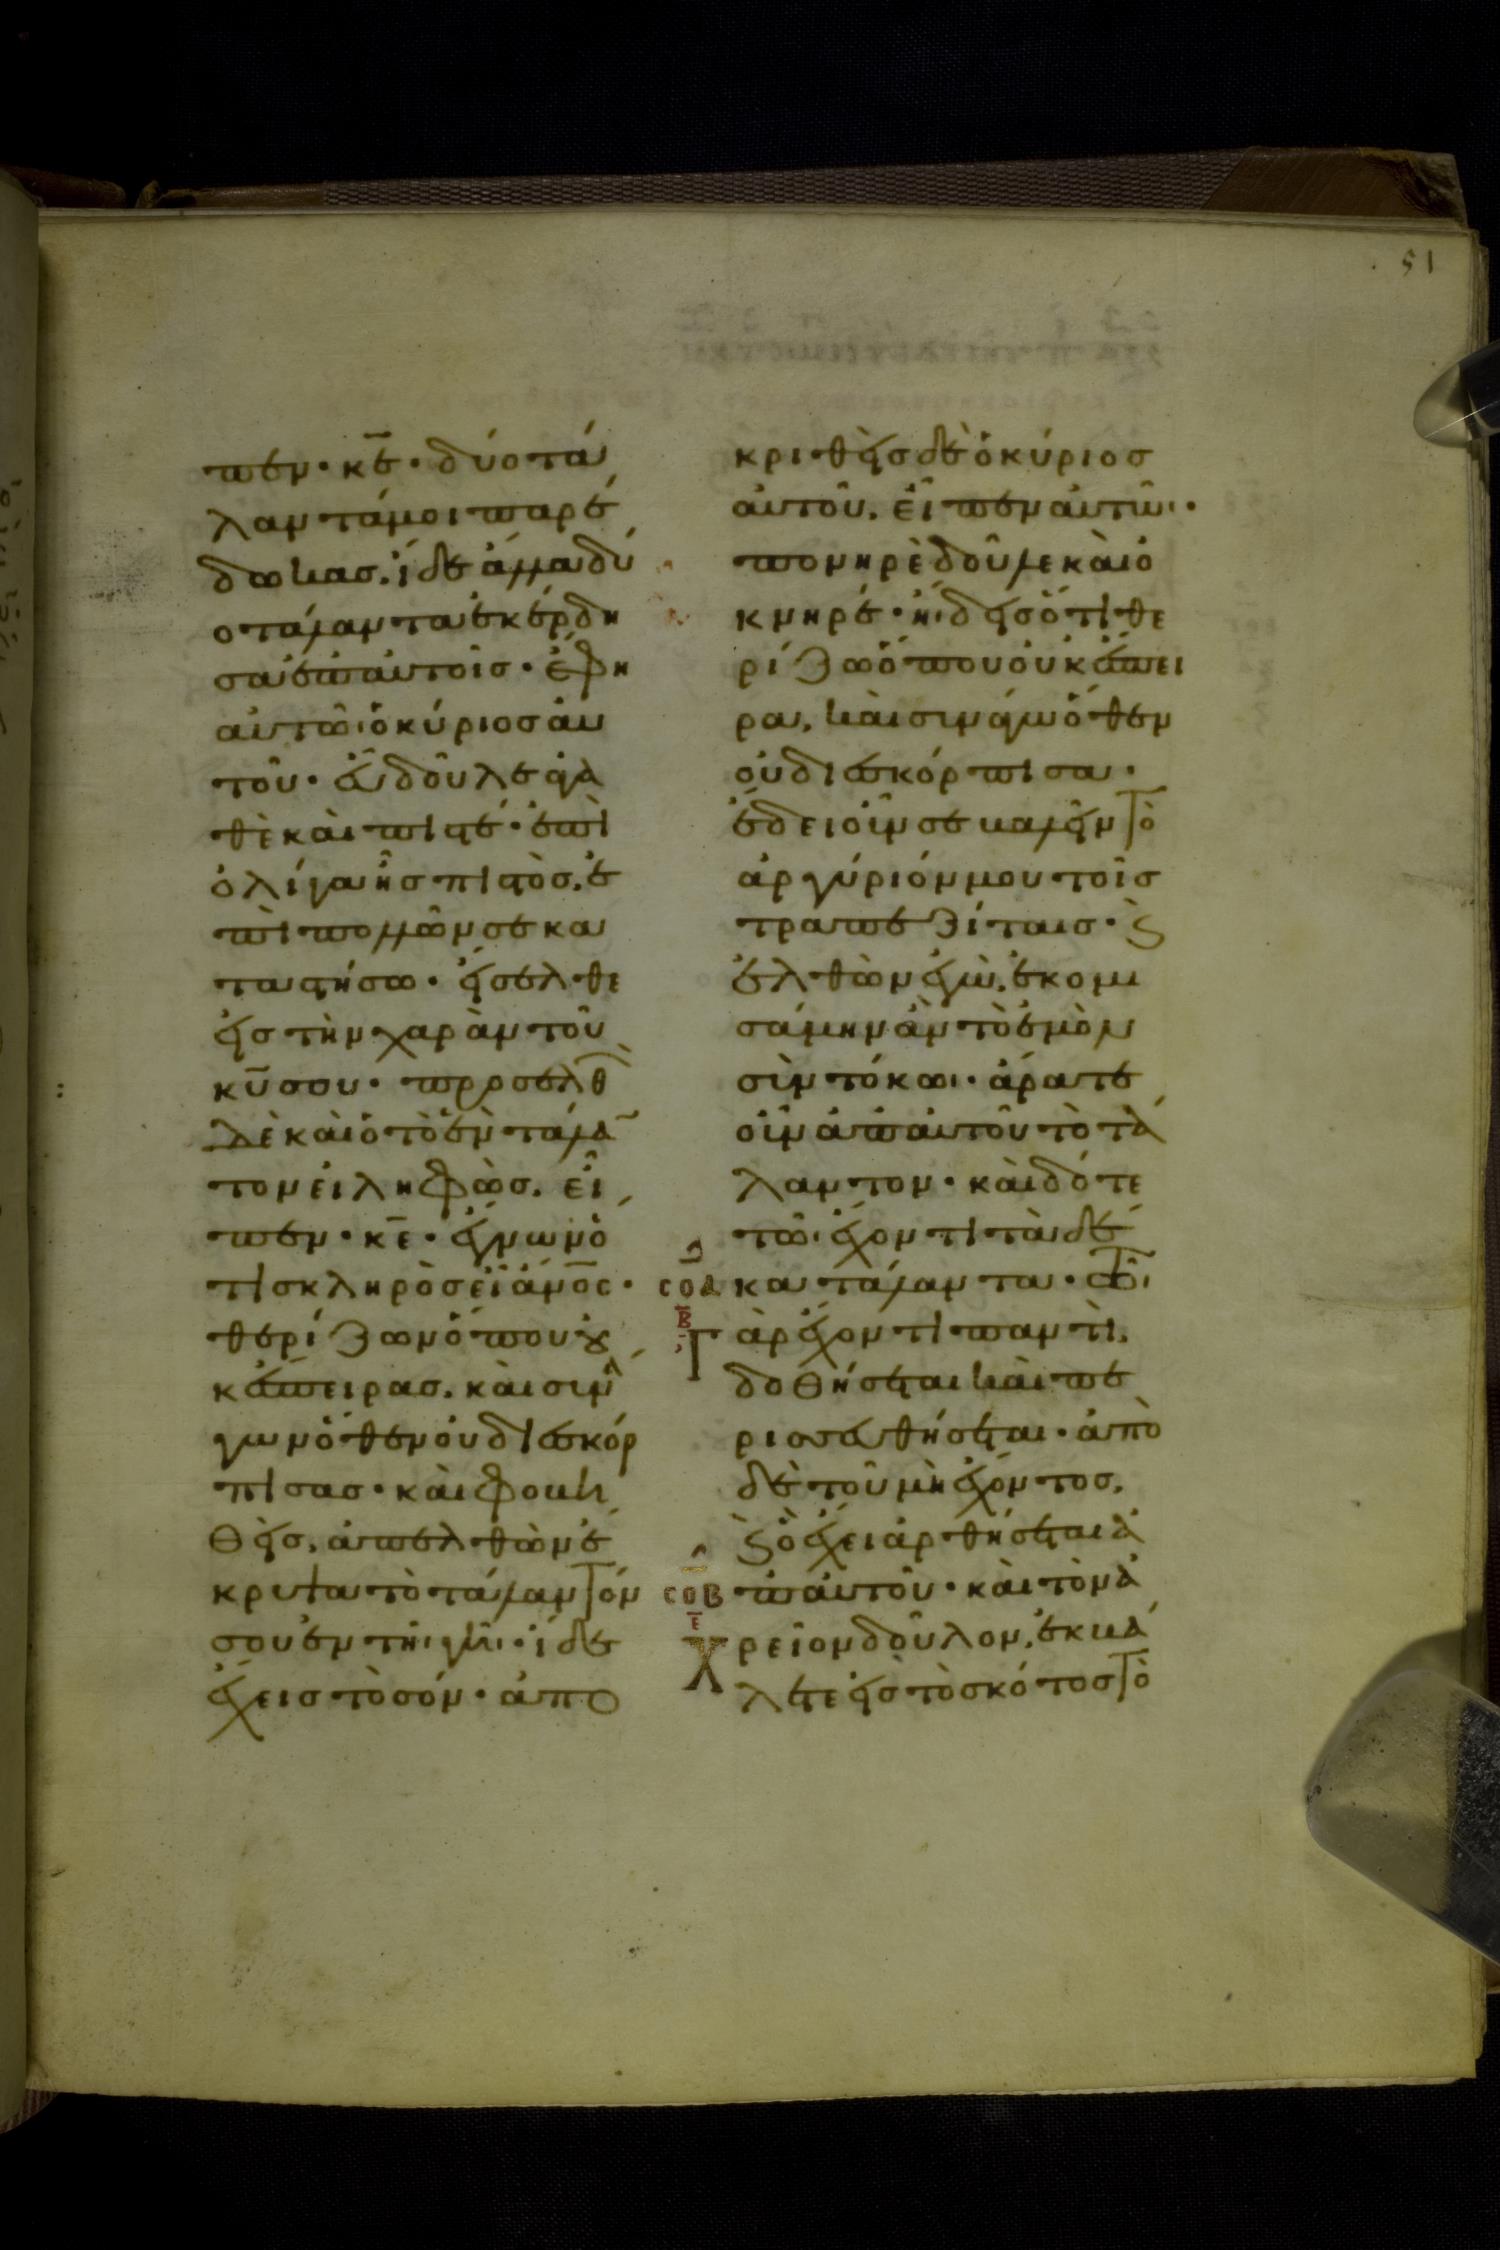 51
πεν· κ̅ε̅· δύο τά
λαντά μοι παρέ
δωκας. ἴδε ἄλλα δύ
ο τάλαντα ἐκέρδη
σα ἐπ' αὐτοῖς· ἔφη
αὐτῶι ὁ κύριος αὐ
τοῦ· εὖ δοῦλε ἀγα
θὲ καὶ πιστέ· ἐπὶ
ὀλίγα ἦς πιστὸς. ἐ
πὶ πολλῶν σε κα
ταστήσω· εἴσελθε
εἰς τὴν χαρὰν τοῦ
κ̅υ̅ σου· προσελθ
δὲ καὶ ὁ τὸ ἓν τάλα
τον εἰληφὼς. εἶ
πεν· κ̅ε̅· ἔγνων ὅ
τι σκληρὸς εἶ ἀ̅ν̅ο̅ς̅·
θερίζων ὅπου οὐ
κ ἔσπειρας. καὶ συνά
γων ὅθεν οὐ διεσκόρ
πισας· καὶ φοβη
θεὶς. ἀπελθὼν ἔ
κρυψα τὸ τάλαντόν
σου ἐν τῆι γῆι· ἴδε
ἔχεις τὸ σόν· ἀπο
κριθεὶς δὲ ὁ κύριος
αὐτοῦ. εἶπεν αὐτῶι·
πονηρὲ δοῦλε καὶ ὀ
κνηρέ· ἤιδεις ὅτι θε
ρίζω ὅπου οὐκ ἔσπει
ρα. καὶ συνάγω ὅθεν
οὐ διεσκόρπισα·
ἔδει οὖν σε βαλεῖν τὸ
ἀργύριόν μου τοῖς
τραπεζίταις· ϗ
ἐλθὼν ἐγὼ. ἐκομι
σάμην ἂν τὸ ἐμὸν
σὺν τόκωι· ἄρατε
οὖν ἀπ' αὐτοῦ τὸ τά
λαντον· καὶ δότε
τῶι ἔχοντι τὰ δέ
κα τάλαντα· τῶι
γὰρ ἔχοντι παντὶ.
δοθήσεται καὶ πε
ρισσευθήσεται· ἀπὸ
δὲ τοῦ μὴ ἔχοντος.
ϗ ὃ ἔχει ἀρθήσεται ἀ
π' αὐτοῦ· καὶ τὸν ἀ
χρεῖον δοῦλον. ἐκβά
λετε εἰς τὸ σκότος τὸ
σοα
β
σοβ
ε